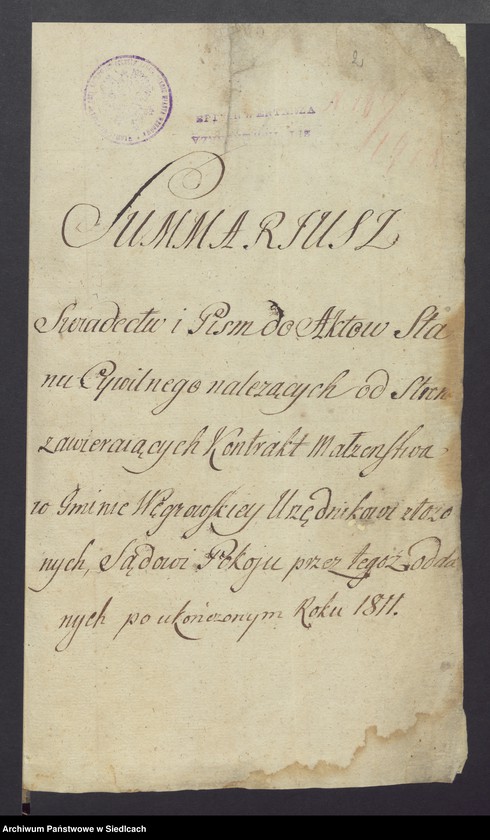 2
SUMMARIUSZ
Swiadectw i Pism do Aktow Sta
nu Cywilnego nalezących od Stron
zawieraiących Kontrakt Małzenstwa
w Gminie Węgrowskiey Urzędnikowi złozo
nych, Sądowi Pokoju przez tegoż odda
nych po ukończonym Roku 1811.
Archiwum Państwowe w Siedlcach